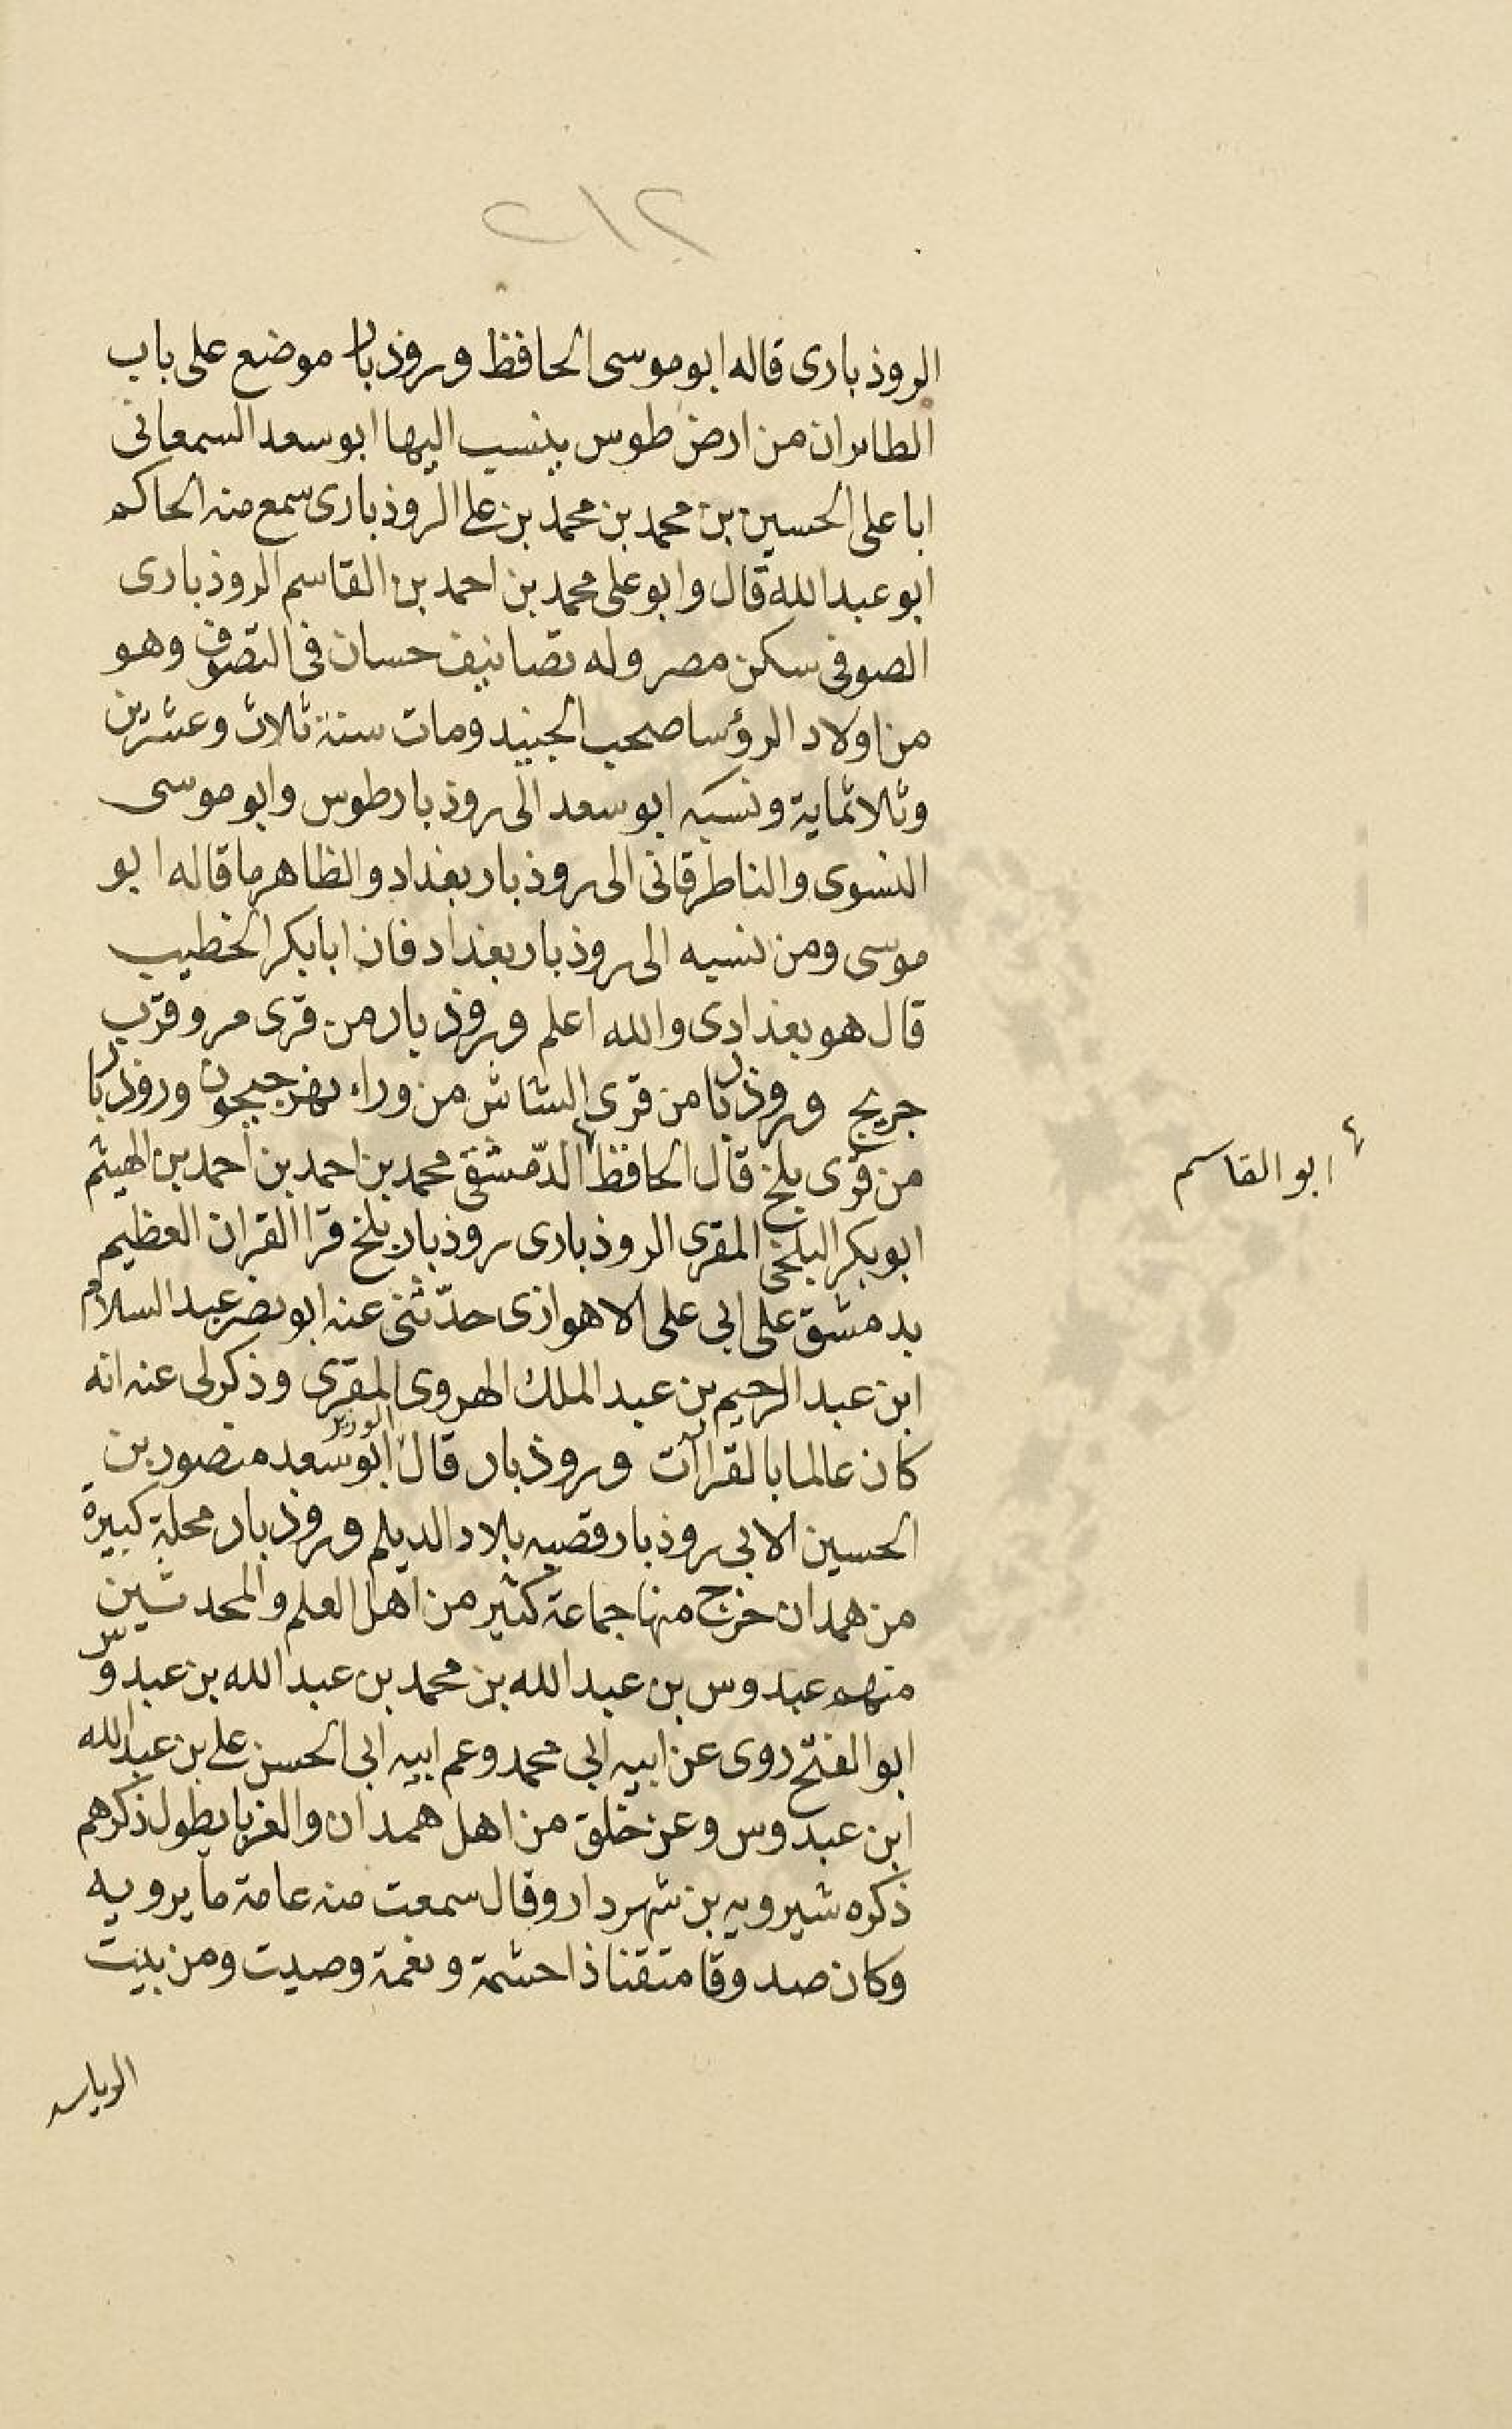 ٢١٢
الروذبارى قاله ابو موسى الحافظ وروذبار موضع على باب
الطابران من ارض طوس ينسب اليها ابو سعد السمعانى
ابا على الحسين بن محمد بن محمد بن على الروذبارى سمع منه الحاكم
ابو عبد الله قال وابو على محمد بن احمد بن القاسم الروذبارى
الصوفى سكن مصر وله تصانيف حسان فى التصوف وهو
من اولاد الرؤسا صحب الجنيد ومات سنة ثلاث وعشرين
وثلاثماية ونسبه ابو سعد الى روذبار طوس وابو موسى
النسوى والناطرقانى الى روذبار بغداد والظاهر ما قاله ابو
موسى ومن نسبه الى روذبار بغداد فان ابا بكر الخطيب
قال هو بغدادى والله اعلم وروذبار من قرى مرو قرب
جريج وروذبار من قرى الشاش من وراء نهر جيحون وروذبار
من قرى بلخ قال الحافظ الدّمشقى محمد بن احمد بن احمد بن الهيثم
ابو القاسم
ابو بكر البلخى المقرى الروذبارى روذبار بلخ قرا القران العظيم
بدمشق على ابى على الاهوازى حدّثنى عنه ابو نصر عبد السلام
ابن عبد الرحيم بن عبد الملك الهروى المقرى وذكر لى عنه انه
كان عالما بالقراآت وروذبار قال الوزير ابو سعد منصور بن
الحسين الابى روذبار قصبه بلاد الديلم وروذبار محلة كبيرة
من همدان خرج منها جماعة كثير من اهل العلم والمحدثين
منهم عبدوس بن عبد الله بن محمد بن عبد الله بن عبدوس
ابو الفتح روى عن ابيه ابى محمد وعم ابيه ابى الحسن على بن عبد الله
ابن عبدوس وعن خلق من اهل همدان والغربا يطول ذكرهم
ذكره شيرويه بن شهردار وقال سمعت منه عامة ما يرويه
وكان صدوقا متقنا ذا حشمة ونعمة وصيت ومن بيت
الرياسه